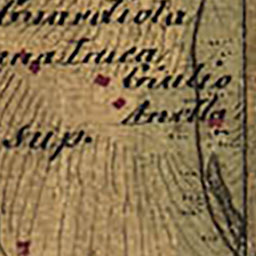 Guardiola
Luca
Giulio
Anella
sup.